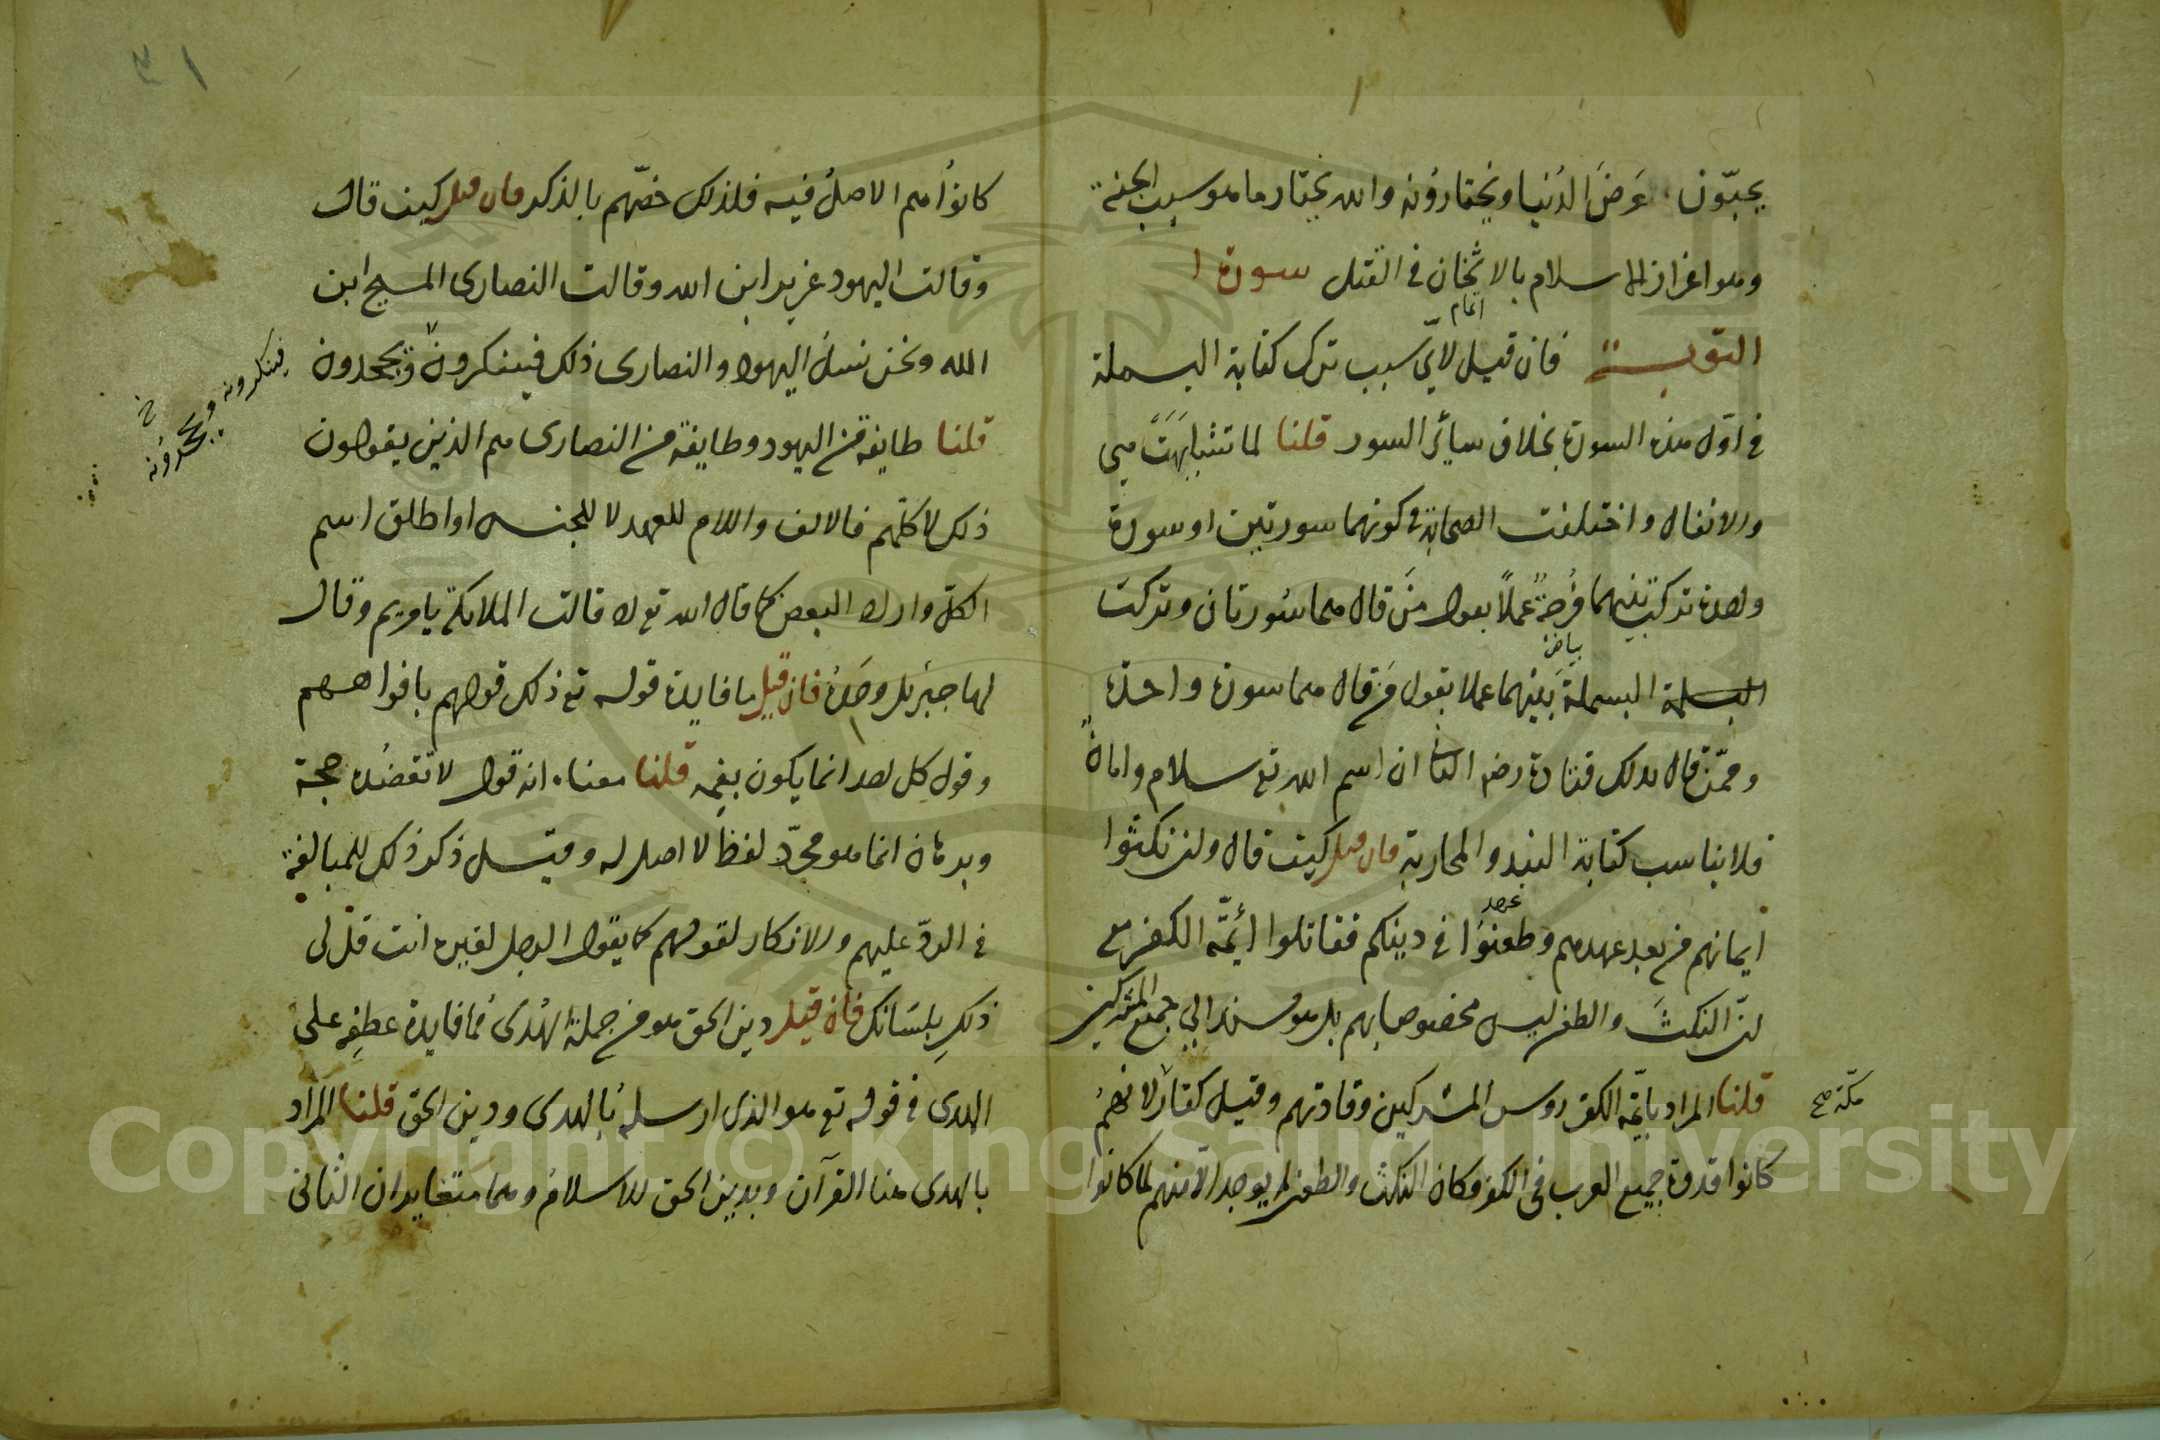 يحبّون عَرَضَ الدُنيا ويختارونه والله يختار ما هو سبب الجنة
وهو اعزاز الاسلام بالاثخان في القتل سورة ا
اتمام
التوبة فان قيل لايّ سبب ترك كتابة البسملة
في اوّل هذه السورة بخلاف سائر السور قلنا لما تشابهَتْ هي
والانفال واختلفت الصحابة في كونهما سورتين او سورة
واحدة تركت بينهما فُرجةً عملاً بقول مَن قال هما سُورتان وتركت
بياض
البسملة البسملة بَينهما عملا بقول مَن قال هما سورة واحدة
وممّن قال بذلك قتادة رضه الثانى ان اسم الله تع سلام وامان
فلا يناسب كتابة النبذ والمحاربة فان قيل كيف قال ولئن نكثوا
عهد
ايمانهم من بعد عهدهم وطعنُوا في دينكم فقاتلوا أئمّة الكفر مع
انّ النكثَ والطعن ليس مخصوصا بهم بل هو مسند الى جميع المشركين
قلنا المراد بائمّة الكفر روس المشركين وقادتهم وقيل كفار لانهمُ
مكّة صح
كانوا قدوة جميع العرب في الكفر فكان النكث والطعن لم يوجد الا منهم لما كانوا
٣١
كانوُا هم الاصلُ فيه فلذلك خصّهم بالذكر فان قيل كيف قال
وقالت اليهود عزير ابن الله وقالت النصارى المسيح ابن
الله ونحن نسئل اليهود والنصارى ذلك فينكرون ويجحدون
فينكرونه ويجحدُونه
خ
قلنا طايفة من اليهود وطايفة من النصارى هم الذين يقولون
ذلك لا كلّهم فالالف واللام للعهد لا للجنس او اطلق اسم
الكلّ واراد البعض كما قال الله تع واذ قالت الملائكة يا مريم وقال
لها جبَريل وحدَهُ فان قيل ما فايدة قوله تع ذلك قولهم بافواههم
وقول كل احد انما يكون بفِمه قلنا معناه انه قول لا تعضُده حجة
وبرهان انما هو مجرّد لفظ لا اصل له وقيل ذكر ذلك للمبالغة
في الردّ عليهم والانكار لقولهم كما يقول الرجل لغيره انت قلت لي
ذلكِ بلسَانك فان قيل دين الحق هو من جملة الهُدى فما فايدة عطفِه على
الهدى في قوله تع هو الذى ارسل رسوله بالهدى ودين الحق قلنا المراد
بالهدى هنا القرآن وبدين الحق الاسلامُ وهما متغايران الثانى
Copyright © King Saud University